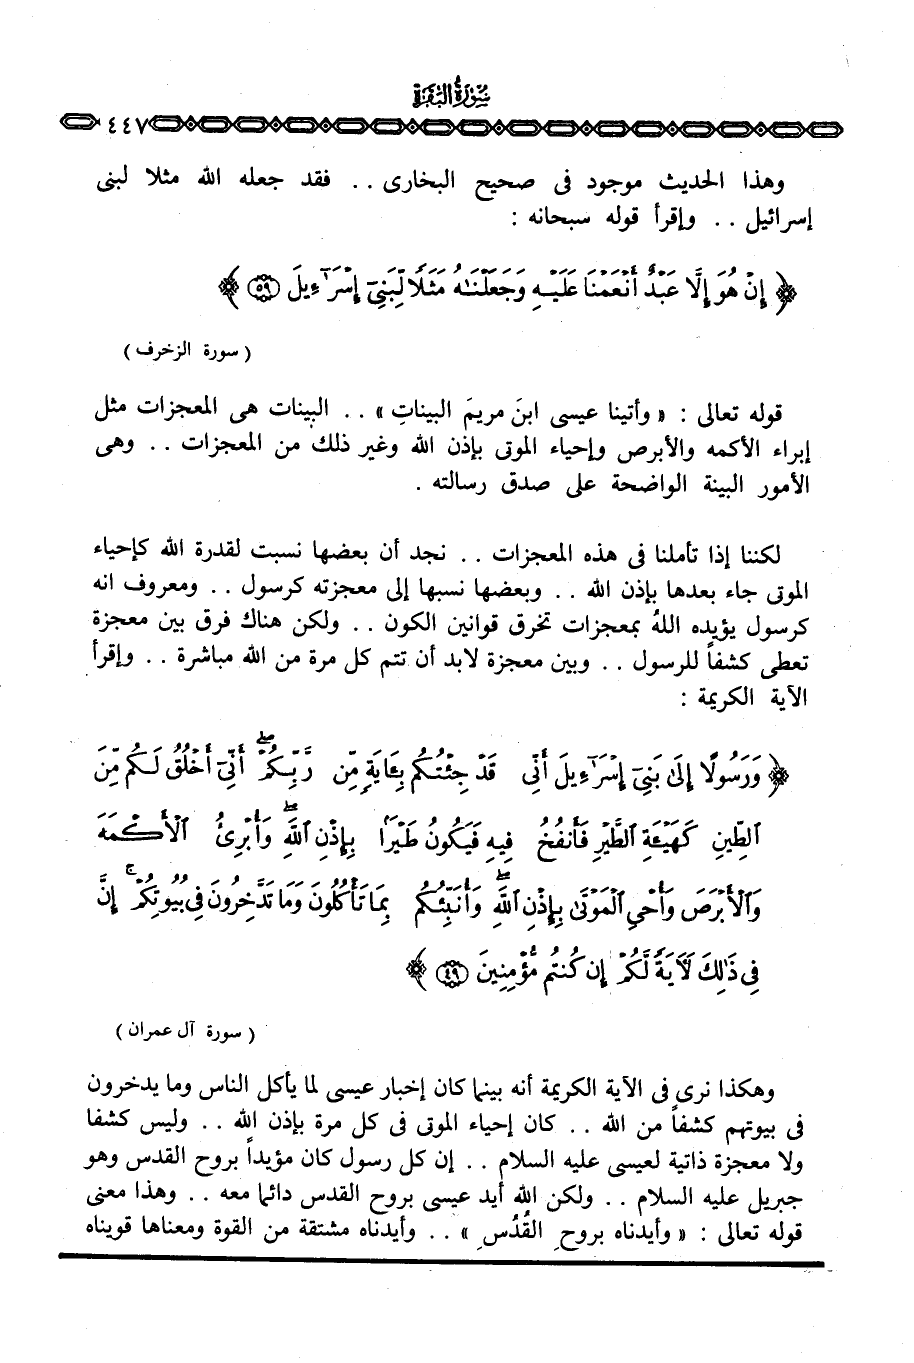 سورة البقرة
٤٤٧
وهذا الحديث موجود فى صحيح البخارى .. فقد جعله الله مثلا لبنى
إسرائيل .. وإقرأ قوله سبحانه :
﴿ إِنْ هُوَ إِلَّا عَبْدٌ أَنْعَمْنَا عَلَيْهِ وَجَعَلْنَٰهُ مَثَلًا لِّبَنِىٓ إِسْرَٰٓءِيلَ ٥٩ ﴾
( سورة الزخرف )
قوله تعالى : « وأتينا عيسى ابنَ مريمَ البيناتِ » .. البينات هى المعجزات مثل
إبراء الأكمه والأبرص وإحياء الموتى بإذن الله وغير ذلك من المعجزات .. وهى
الأمور البينة الواضحة على صدق رسالته .
لكننا إذا تأملنا فى هذه المعجزات .. نجد أن بعضها نسبت لقدرة الله كإحياء
الموتى جاء بعدها بإذن الله .. وبعضها نسبها إلى معجزته كرسول .. ومعروف انه
كرسول يؤيده اللهُ بمعجزات تخرق قوانين الكون .. ولكن هناك فرق بين معجزة
تعطى كشفاً للرسول .. وبين معجزة لابد أن تتم كل مرة من الله مباشرة .. وإقرأ
الآية الكريمة :
﴿ وَرَسُولًا إِلَىٰ بَنِىٓ إِسْرَٰٓءِيلَ أَنِّى قَدْ جِئْتُكُم بِـَٔايَةٍ مِّن رَّبِّكُمْ ۖ أَنِّىٓ أَخْلُقُ لَكُم مِّنَ
ٱلطِّينِ كَهَيْـَٔةِ ٱلطَّيْرِ فَأَنفُخُ فِيهِ فَيَكُونُ طَيْرًا بِإِذْنِ ٱللَّهِ ۖ وَأُبْرِئُ ٱلْأَكْمَهَ
وَٱلْأَبْرَصَ وَأُحْىِ ٱلْمَوْتَىٰ بِإِذْنِ ٱللَّهِ ۖ وَأُنَبِّئُكُم بِمَا تَأْكُلُونَ وَمَا تَدَّخِرُونَ فِى بُيُوتِكُمْ ۚ إِنَّ
فِى ذَٰلِكَ لَآيَةً لَّكُمْ إِن كُنتُم مُّؤْمِنِينَ ٤٩ ﴾
( سورة آل عمران )
وهكذا نرى فى الآية الكريمة أنه بينما كان إخبار عيسى لما يأكل الناس وما يدخرون
فى بيوتهم كشفاً من الله .. كان إحياء الموتى فى كل مرة بإذن الله .. وليس كشفا
ولا معجزة ذاتية لعيسى عليه السلام .. إن كل رسول كان مؤيداً بروح القدس وهو
جبريل عليه السلام .. ولكن الله أيد عيسى بروح القدس دائما معه .. وهذا معنى
قوله تعالى : « وأيدناه بروحِ القُدُسِ » .. وأيدناه مشتقة من القوة ومعناها قويناه